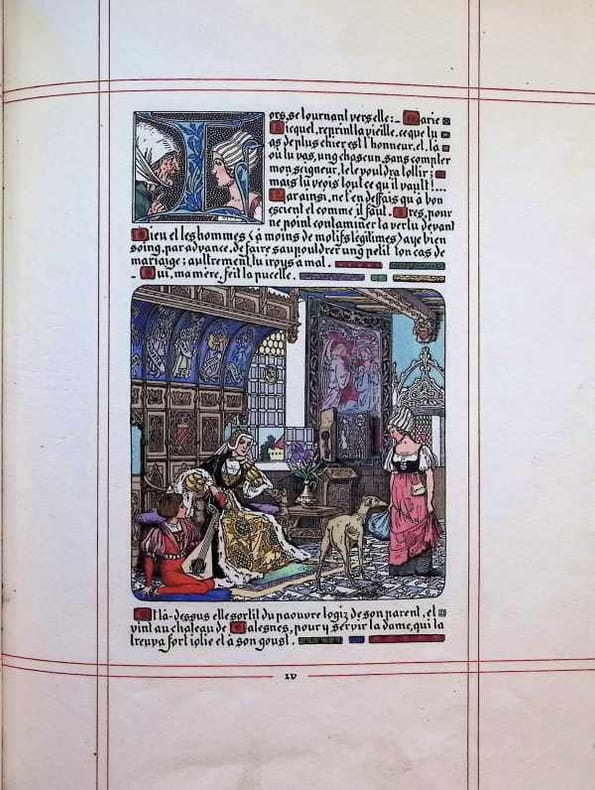 Lors, se tournant vers elle :_ Marie
Ficquet, reprint la vieille, ce que tu
as de plus chier est l'honneur, et, là
où tu vas, ung chascun, sans compter
mon seigneur, te le vouldra tollir ;
mais tu veois tout ce qu'il vault !...
Par ainsi, ne t'en deffais qu'à bon
escient et comme il faut. Ores, pour
ne point contaminer ta vertu devant
Dieu et les hommes (à moins de motifs légitimes) aye bien
soing, par advance, de faire saupouldrer ung petit ton cas de
mariaige ; aultrement tu iroys à mal.
_ Oui, ma mère, feit la pucelle.
Et là-dessus elle sortit du paouvre logiz de son parent, et
vint au chateau de Valesnes, pour y servir la dame, qui la
treuva fort jolie et à son goust.